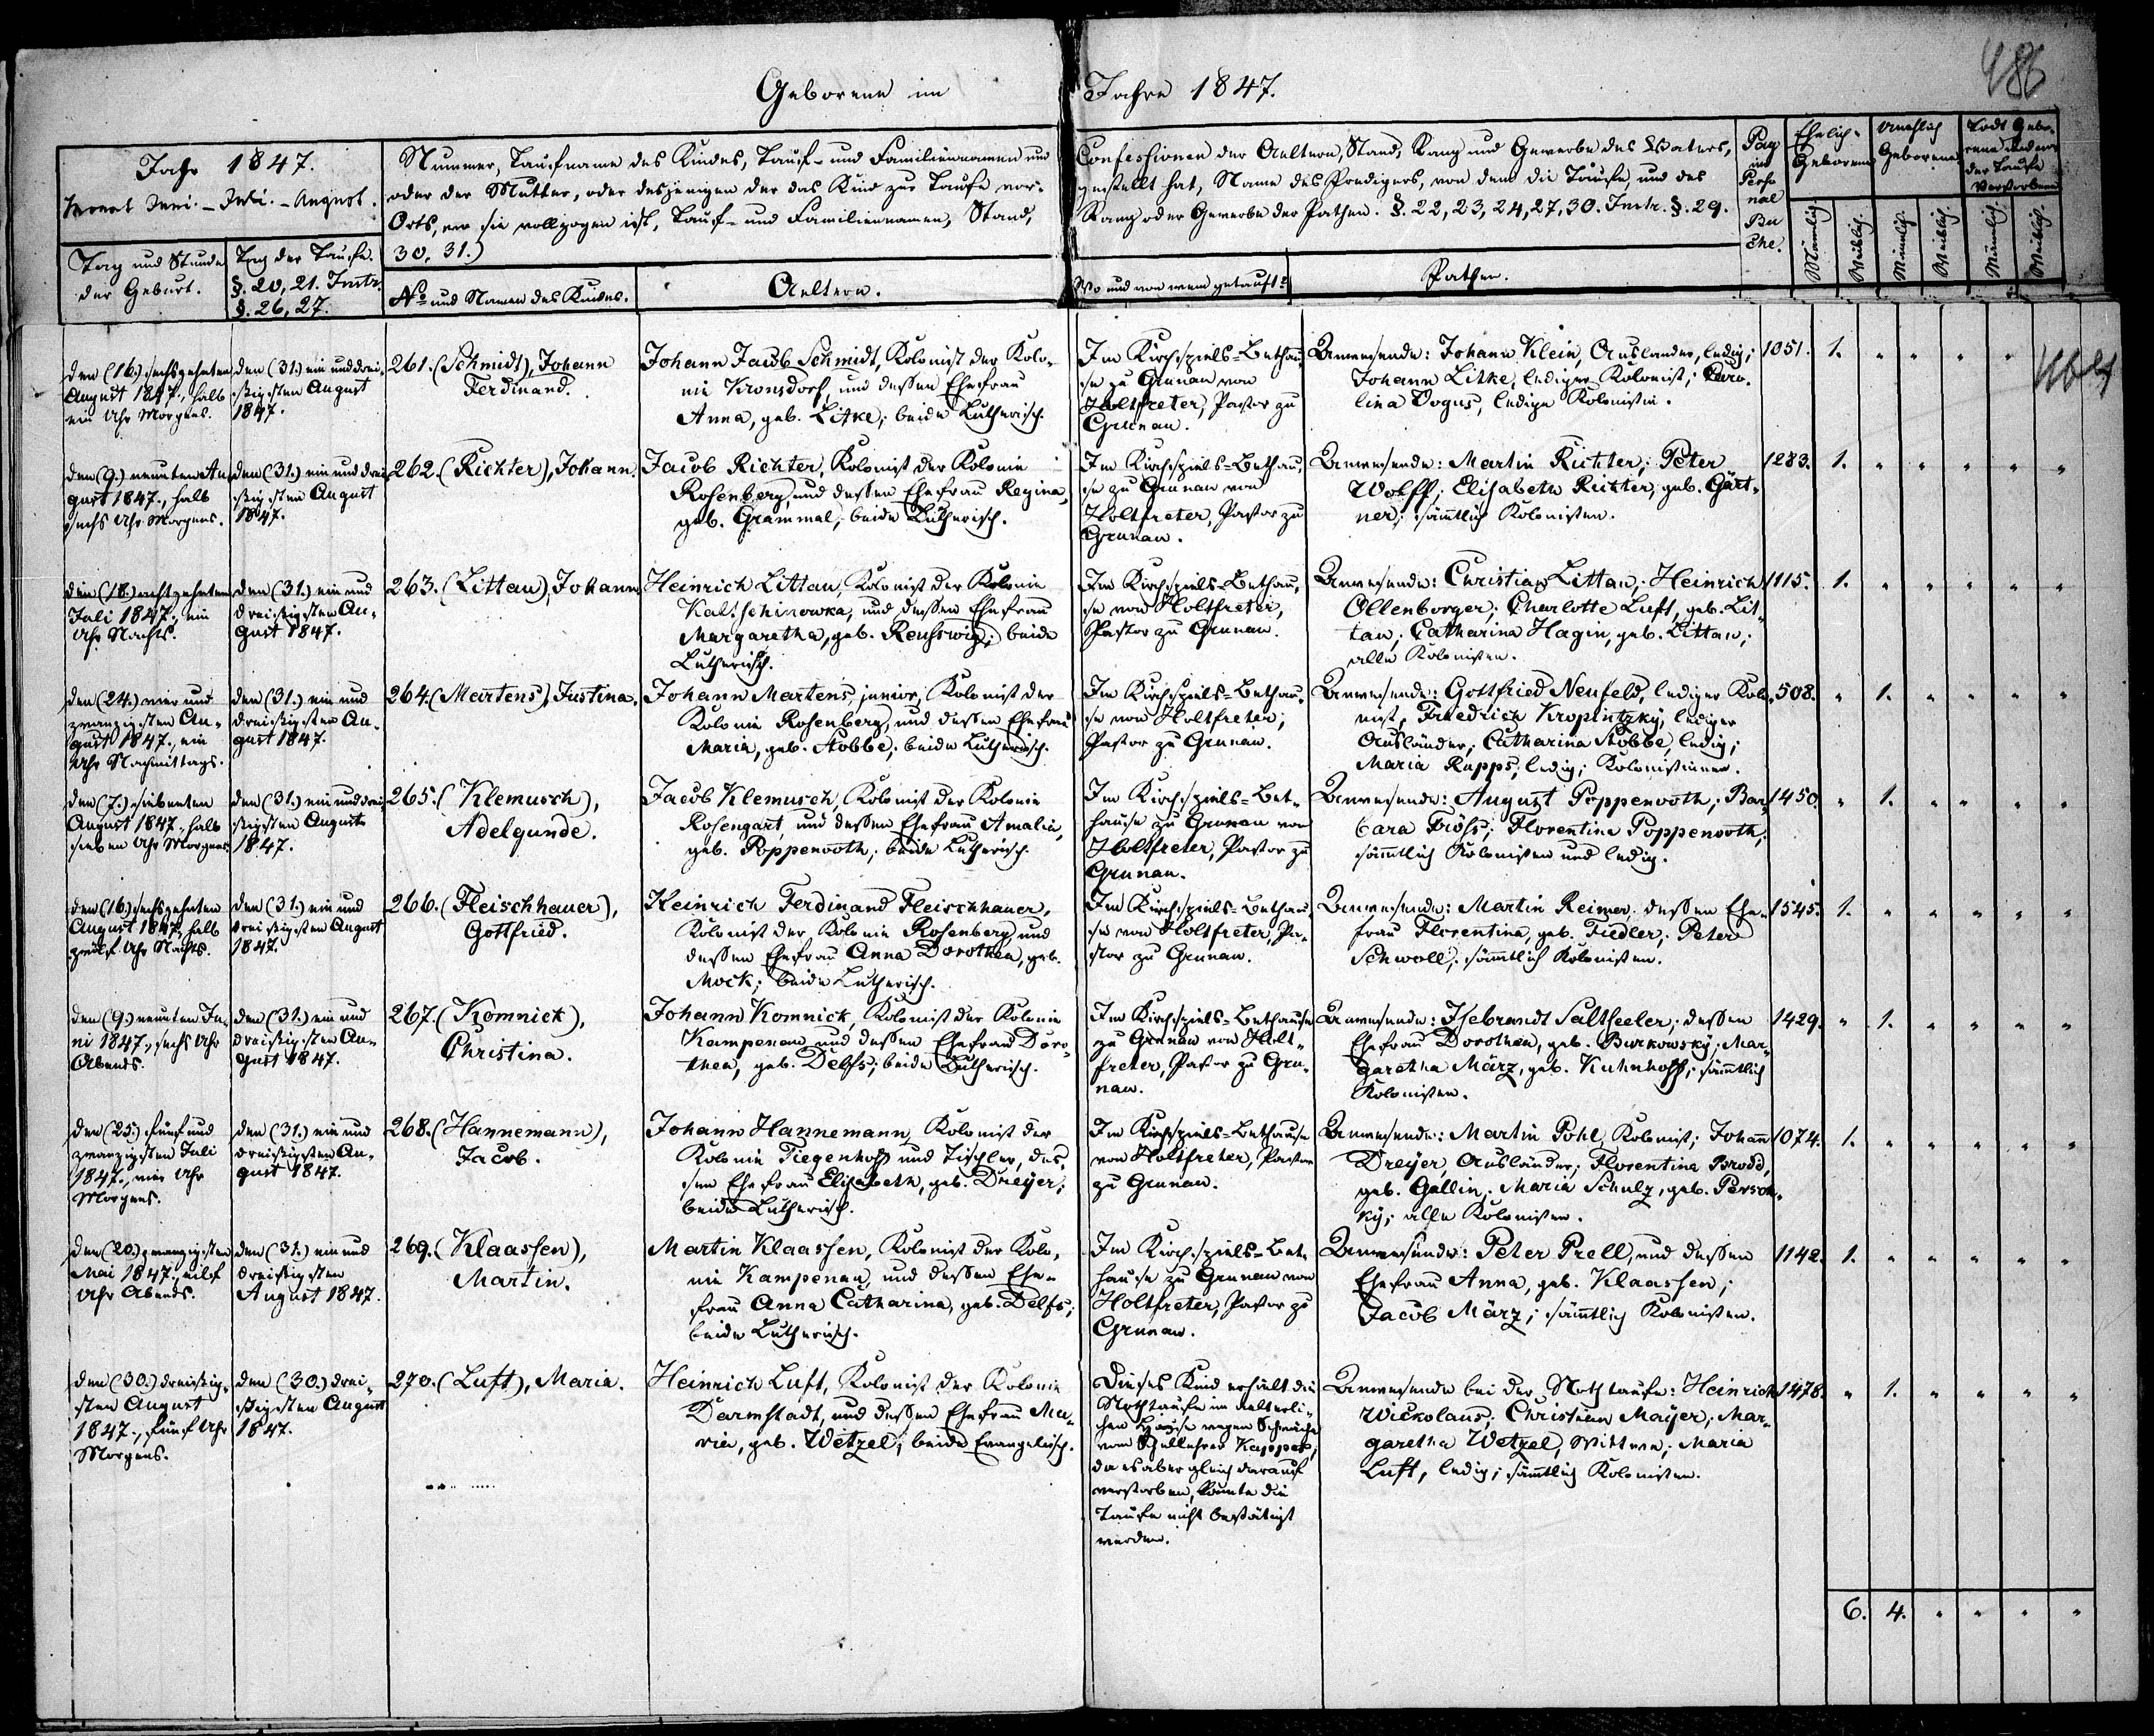 Geborene im Jahre 1847.
486
Jahr 1847.
Monat Juni. - Juli. - August.
Tag und Stunde
der Geburt.
Tag der Taufe.
§. 20, 21. Instr.
§. 26, 27.
Nummer, Taufname des Kindes, Tauf- und Familiennamen und
oder der Mutter, oder desjenigen der das Kind zur Taufe vor-
Orts, wo sie vollzogen ist, Tauf- und Familiennamen, Stand,
30, 31.)
No und Namen des Kindes.
Aeltern.
Confessionen der Aeltern, Stand, Rang und Gewerbe des Vaters,
gestellt hat, Name des Predigers, von dem die Taufe, und des
Rang oder Gewerbe der Pathen. §. 22, 23, 24, 27, 30. Instr. §. 29.
Wo und von wem getauft?
Pathen.
Pag
im
Perso
nal
Bu
che.
Ehelich-
Geborene
Unehlich
Geborene
Todt Gebo-
rene und vor
der Taufe
Verstorbene
Männlich.
Weiblich.
Männlich.
Weiblich.
Männlich.
Weiblich.
den (16.) sechszehnten
August 1847., halb
ein Uhr Morgens.
den (31.) ein und drei-
ßigsten August
1847.
261. (Schmidt), Johann
Ferdinand.
Johann Jacob Schmidt, Kolonist der Kolo-
nie Kronsdorf, und dessen Ehefrau
Anna, geb. Litke; beide Lutherisch.
Im Kirchspiels-Bethau-
se zu Grunau von
Holtfreter, Pastor zu
Grunau.
Anwesende: Johann Klein, Ausländer, ledig;
Johann Litke, lediger Kolonist; Caro-
lina Vogus, ledige Kolonistin.
1051. 1. " " " "
den (9.) neunten Au-
gust 1847., halb
sechs Uhr Morgens.
den (31.) ein und drei-
ßigsten August
1847.
262. (Richter), Johann.
Jacob Richter, Kolonist der Kolonie
Rosenberg, und dessen Ehefrau Regina,
geb. Grammal, beide Lutherisch.
Im Kirchspiels-Bethau-
se zu Grunau von
Holtfreter, Pastor zu
Grunau.
Anwesende: Martin Richter; Peter
Wolff; Elisabeth Richter, geb. Gärt-
ner; sämtlich Kolonisten.
1283. 1. " " " " "
den (18.) achtzehnten
Juli 1847., ein
Uhr Nachts.
den (31.) ein und
dreißigsten Au-
gust 1847.
263. (Littau), Johann
Heinrich Littau, Kolonist der Kolonie
Kaltschinowka, und dessen Ehefrau
Margaretha, geb. ; beide
Lutherisch.
Im Kirchspiels-Bethau-
se von Holtfreter,
Pastor zu Grunau.
Anwesende: Christian Littau; Heinrich
Ollenborger; Charlotte Luft, geb. Lit-
tau; Catharina Hagin, geb. Littau;
alle Kolonisten.
1115. 1. " " " " "
den (24.) vier und
zwanzigsten Au-
gust 1847., ein
Uhr Nachmittags.
den (31.) ein und
dreißigsten Au-
gust 1847.
264. (Martens), Justina.
Johann Martens, junior, Kolonist der
Kolonie Rosenberg, und dessen Ehefrau
Maria, geb. Stobbe; beide Lutherisch.
Im Kirchspiels-Bethau-
se von Holtfreter,
Pastor zu Grunau.
Anwesende: Gottfried Neufeld, lediger Kolo-
nist, Friedrich Kropintzky, lediger
Ausländer; Catharina Stobbe, ledig;
Maria Rupps, ledig; Kolonistinnen.
508. " 1. " " " "
den (7.) siebenten
August 1847., halb
sieben Uhr Morgens.
den (31.) ein und drei-
ßigsten August
1847.
265. (Klemusch),
Adelgunde.
Jacob Klemusch, Kolonist der Kolonie
Rosengart, und dessen Ehefrau Amalia,
geb. Poppenooth; beide Lutherisch.
Im Kirchspiels-Bet-
hause zu Grunau von
Holtfreter, Pastor zu
Grunau.
Anwesende: August Poppenooth; Bar-
bara Fröss; Florentine Poppenooth;
sämmtlich Kolonisten und ledig.
1450. " 1. " " " "
den (16.) sechszehnten
August 1847., halb
zwölf Uhr Nachts.
den (31.) ein und
dreißigsten August
1847.
266. (Fleischhauer),
Gottfried.
Heinrich Ferdinand Fleischhauer,
Kolonist der Kolonie Rosenberg, und
dessen Ehefrau Anna Dorothea, geb.
Mock; beide Lutherisch.
Im Kirchspiels-Bethau-
se von Holtfreter, Pa-
stor zu Grunau.
Anwesende: Martin Reimer, dessen Ehe-
frau Florentina, geb. Fiedler; Peter
Schwoll; sämtlich Kolonisten.
1545. 1. " " " " "
den (9.) neunten Ju-
ni 1847., sechs Uhr
Abends.
den (31.) ein und
dreißigsten Au-
gust 1847.
267. (Komnick),
Christina.
Johann Komnick, Kolonist der Kolonie
Kampenau, und dessen Ehefrau Doro-
thea, geb. Delfs; beide Lutherisch.
Im Kirchspiels-Bethause
zu Grunau von Holt-
freter, Pastor zu Gru-
nau.
Anwesende: Isebrandt Saltseeler; dessen
Ehefrau Dorothea, geb. Burkowsky; Mar-
garetha März, geb. Kuhnhoff; sämmtlich
Kolonisten.
1429. " 1. " " " "
den (25.) fünf und
zwanzigsten Juli
1847., vier Uhr
Morgens.
den (31.) ein und
dreißigsten Au-
gust 1847.
268. (Hannemann),
Jacob.
Johann Hannemann, Kolonist der
Kolonie Tiegenhoff und Tischler, des-
sen Ehefrau Elisabeth, geb. Dreyer;
beide Lutherisch.
Im Kirchspiels-Bethause
von Holtfreter, Pastor
zu Grunau.
Anwesende: Martin Pohl, Kolonist; Johann
Dreyer, Ausländer; Florentina Brodd,
geb. Gallin; Maria Schulz, geb. Person-
ky; alle Kolonisten.
1074. 1. " " " " "
den (20.) zwanzigsten
Mai 1847., eilf
Uhr Abends.
den (31.) ein und
dreißigsten
August 1847.
269. (Klaassen),
Martin.
Martin Klaassen, Kolonist der Kolo-
nie Kampenau, und dessen Ehe-
frau Anna Catharina, geb. Delfs;
beide Lutherisch.
Im Kirchspiels-Bet-
hause zu Grunau von
Holtfreter, Pastor zu
Grunau.
Anwesende: Peter Prell, und dessen
Ehefrau Anna, geb. Klaassen;
Jacob März; sämtlich Kolonisten.
1142. 1. " " " " "
den (30.) dreißig-
sten August
1847., fünf Uhr
Morgens.
den (30.) drei-
ßigsten August
1847.
270. (Luft), Maria.
Heinrich Luft, Kolonist der Kolonie
Darmstadt, und dessen Ehefrau Ma-
ria, geb. Wetzel; beide Evangelisch.
Dieses Kind erhielt die
Nothtaufe im aelterli-
chen Hause wegen Schwäche
vom Schullehrer Kappes;
da es aber gleich darauf
verstorben, konnte die
Taufe nicht bestätigt
werden.
Anwesende bei der Nothtaufe: Heinrich
Wickolaus; Christian Mayer; Mar-
garetha Wetzel, Wittwe; Maria
Luft, ledig; sämtlich Kolonisten.
1478. " 1. " " " "
6. 4. " " " "